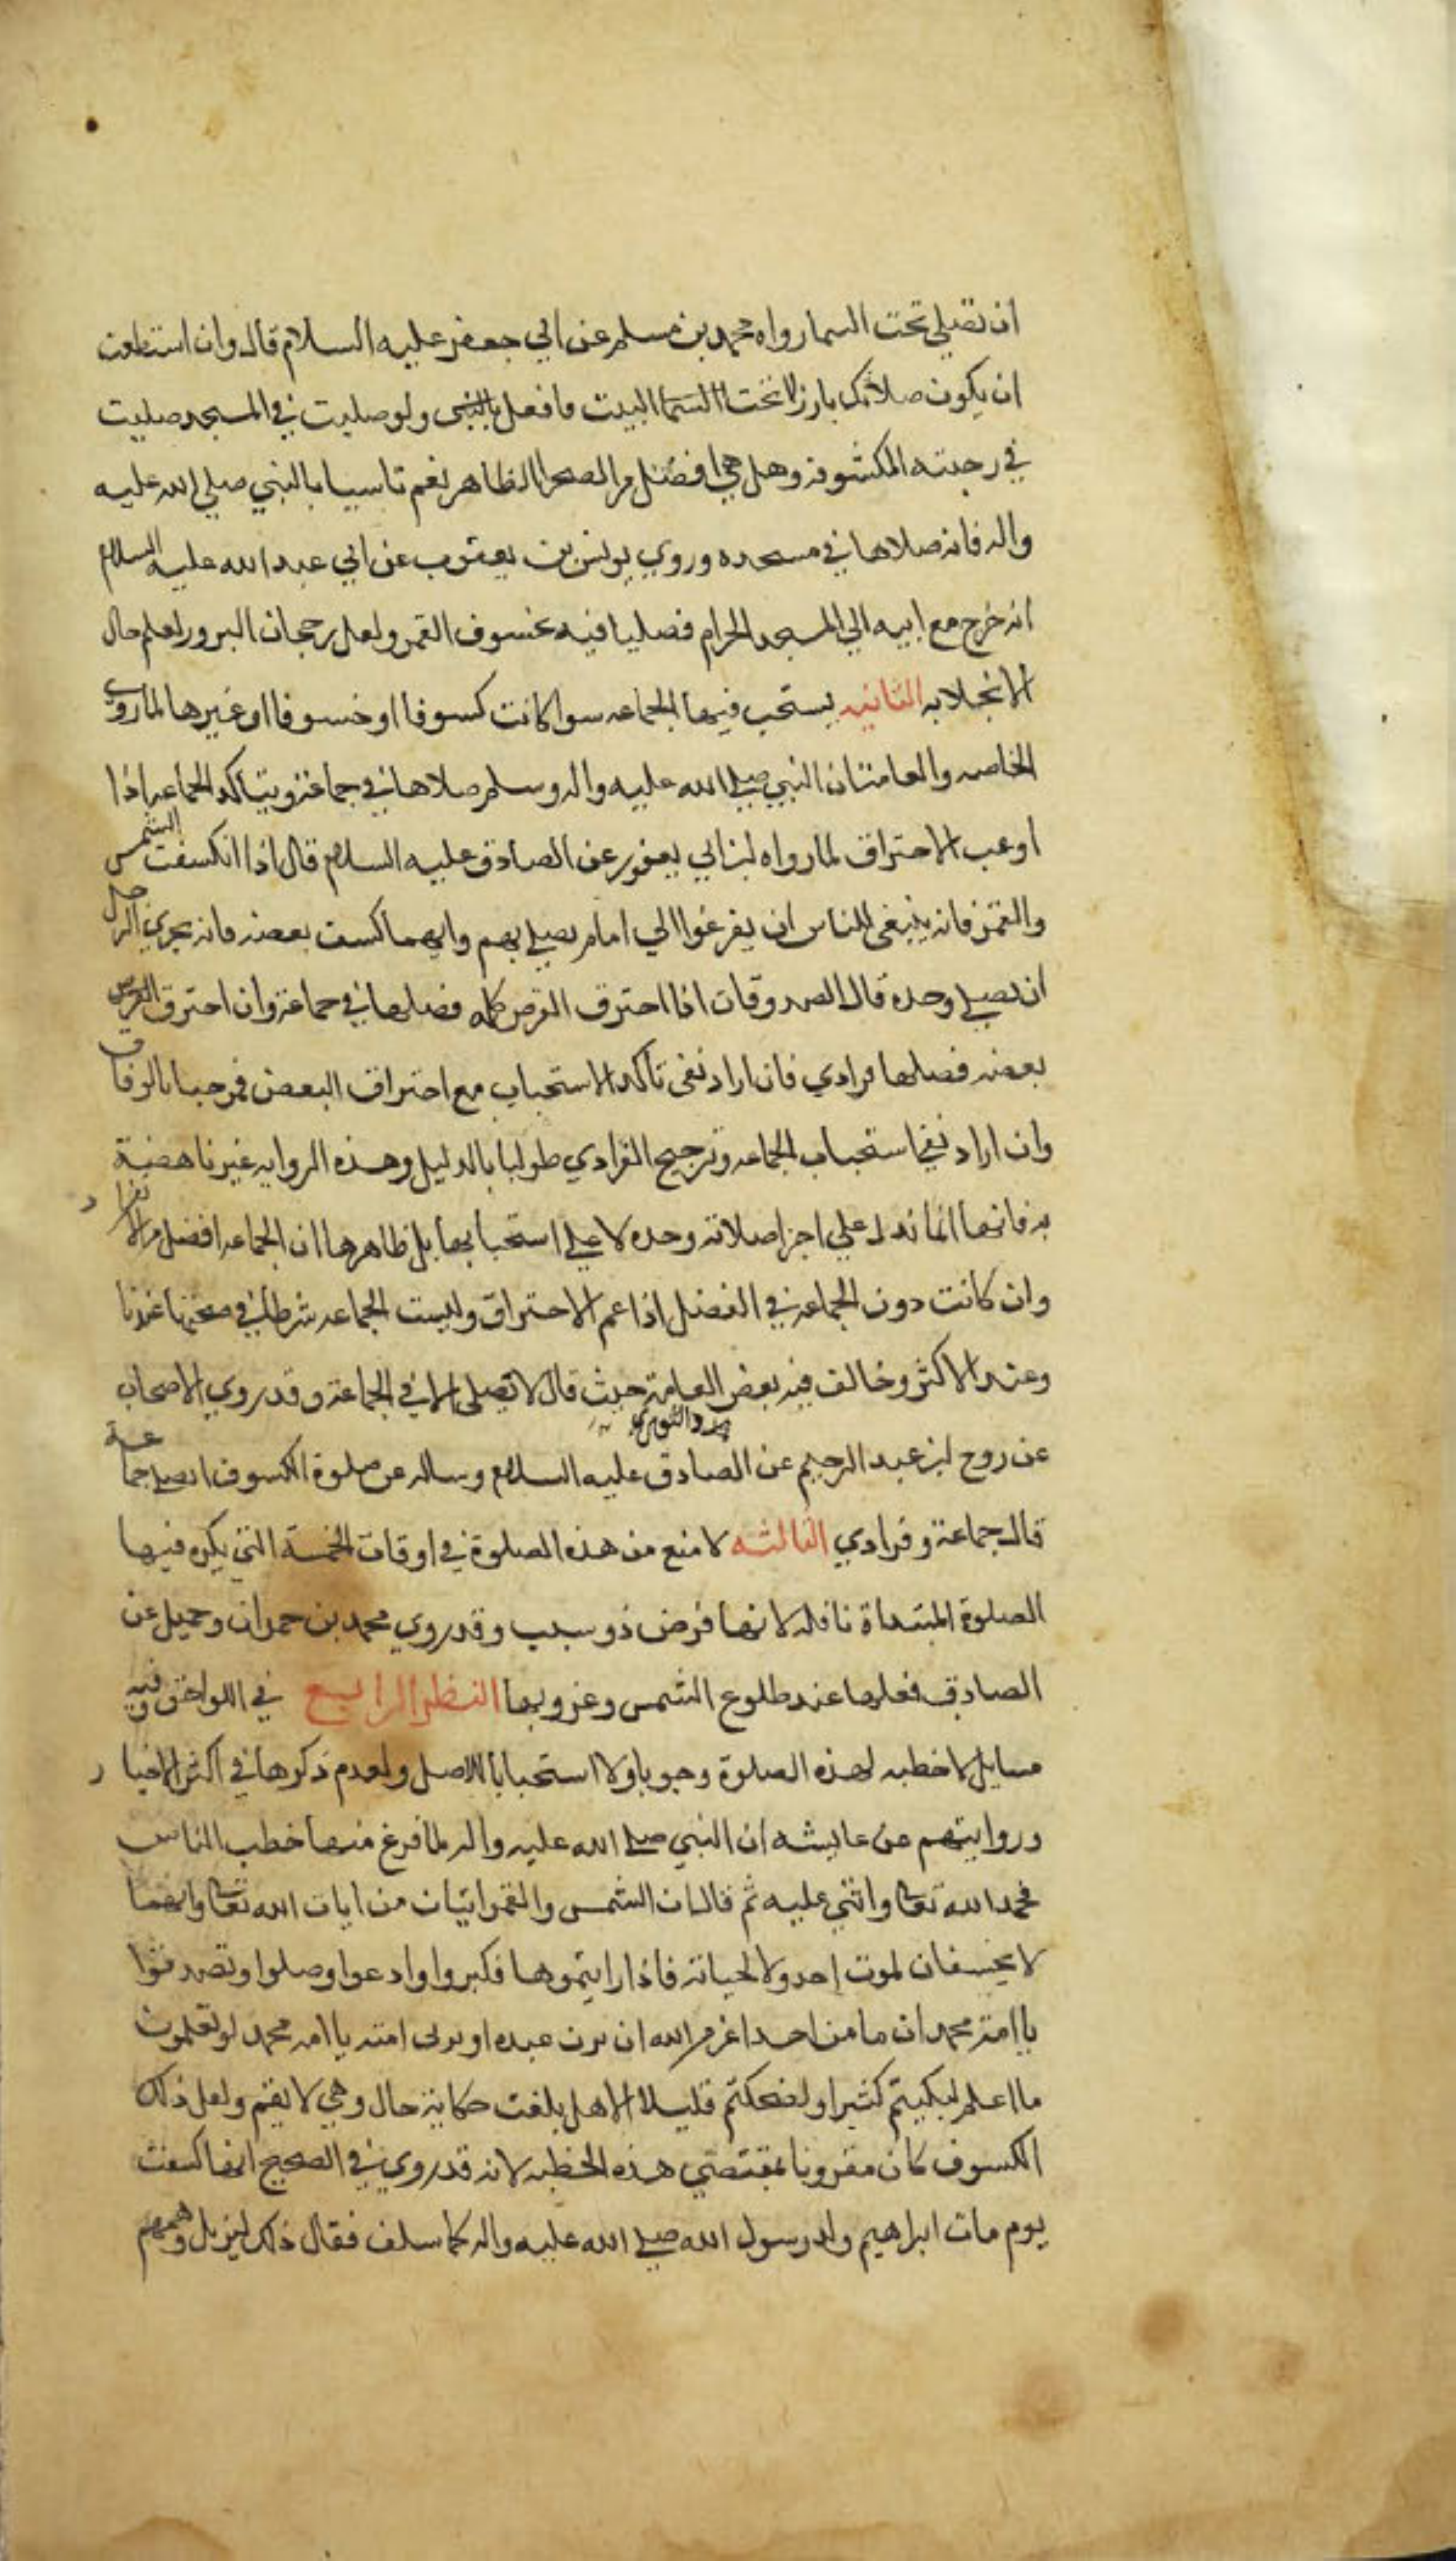 ان تصلي تحت السما رواه محمد بن مسلم عن ابي جعفر عليه السلام قال وان استطعت
ان يكون صلاتك بارزا تحت السما البيت فافعل بالنبى ولو صليت في المسجد صليت
في رحبته المكشوفة وهل هي افضل من الصحرا الظاهر نعم تاسيا بالنبي صلى الله عليه
واله فانه صلاها في مسجده وروي يونس بن يعقوب عن ابي عبد الله عليه السلام
انه خرج مع ابيه الي المسجد الحرام فصليا فيه خسوف القمر ولعل رجحان البروز لعلم حال
الانجلا به الثانيه يستحب فيها الجماعه سوا كانت كسوفا او خسوفا او غيرها لما روت
الخاصه والعامة ان النبي صلى الله عليه واله وسلم صلاها في جماعة ويتاكد الجماعه اذا
اوعب الاحتراق لما رواه ابن ابي يعفور عن الصادق عليه السلام قال اذا انكسفت الشمس
والقمر فانه ينبغي للناس ان يفزعوا الي امام يصلي بهم وايهما كسف بعضه فانه يجزي الرجل
ان يصلي وحده قال الصدوقان اذا احترق القرص كله فصلها في جماعة وان احترق القرص
بعضه فصلها فرادي فان اراد نفى تاكد الاستحباب مع احتراق البعض فمرحبا بالوفاق
وان اراد نفي استحباب الجماعه وترجيح الفرادي طولبا بالدليل وهذه الروايه غير ناهضة
به فانها انما تدل على اجزا صلاته وحده لا على استحبابها بل ظاهرها ان الجماعه افضل من الانفراد
وان كانت دون الجماعه في الفضل اذا عم الاحتراق وليست الجماعه شرطا في صحتها عندنا
وعند الاكثر وخالف فيه بعض العامة حيث قال لا تصلى الا في الجماعة وقد روي الاصحاب
والثوري
عن روح ابن عبد الرحيم عن الصادق عليه السلام وساله عن صلوة الكسوف اتصلي جماعة
قال جماعة وفرادي الثالثه لا منع من هذه الصلوة في اوقات الخمسة التي يكره فيها
الصلوة المبتداة نافله لانها فرض ذو سبب وقد روي محمد بن حمران وجميل عن
الصادق فعلها عند طلوع الشمس وغروبها النظر الرابع في اللواحق وفيه
مسايل لا خطبه لهذه الصلوة وجوبا ولا استحبابا للاصل ولعدم ذكرها في اكثر الاخبار
وروايتهم عن عايشه ان النبي صلى الله عليه واله لما فرغ منها خطب الناس
فحمد الله تعا واثنى عليه ثم قال ان الشمس والقمر ايتان من ايات الله تعا وانهما
لا يخسفان لموت احد ولا لحياته فاذا رايتموها فكبروا وادعوا وصلوا وتصدقوا
يا امة محمد ان ما من احد اغير من الله ان يزن عبده او يزنى امته يا امه محمد لو تعلمون
ما اعلم لبكيتم كثيرا ولضحكتم قليلا الا هل بلغت حكاية حال وهي لا يقم ولعل ذلك
الكسوف كان مقرونا بمقتضي هذه الخطبه لانه قد روي في الصحيح انها كسفت
يوم مات ابراهيم ولد رسول الله صلى الله عليه واله كما سلف فقال ذلك ليزيل وهمهم